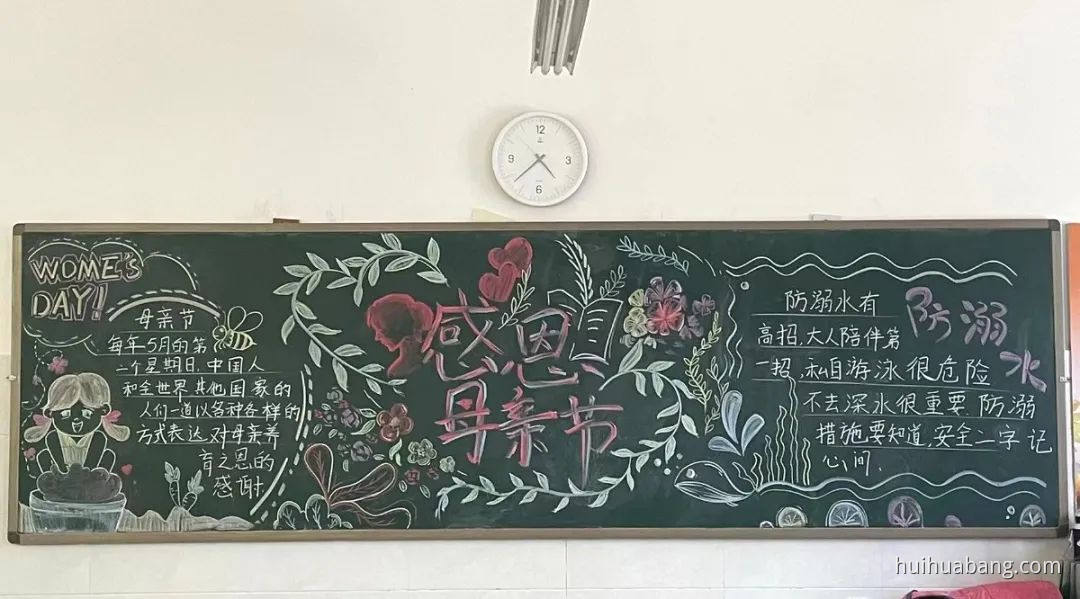 12
3
6
9
WOME'S
DAY!
母亲节
每年5月的第
二个星期日,中国人
和全世界其他国家的
人们一道以各种各样的
方式表达,对母亲养
育之恩的
感谢.
感恩
母亲节
防溺水有
高招,大人陪伴第
一招,私自游泳很危险
不去深水很重要,防溺
措施要知道,安全二字记
心间.
防溺
水
huihuabang.com